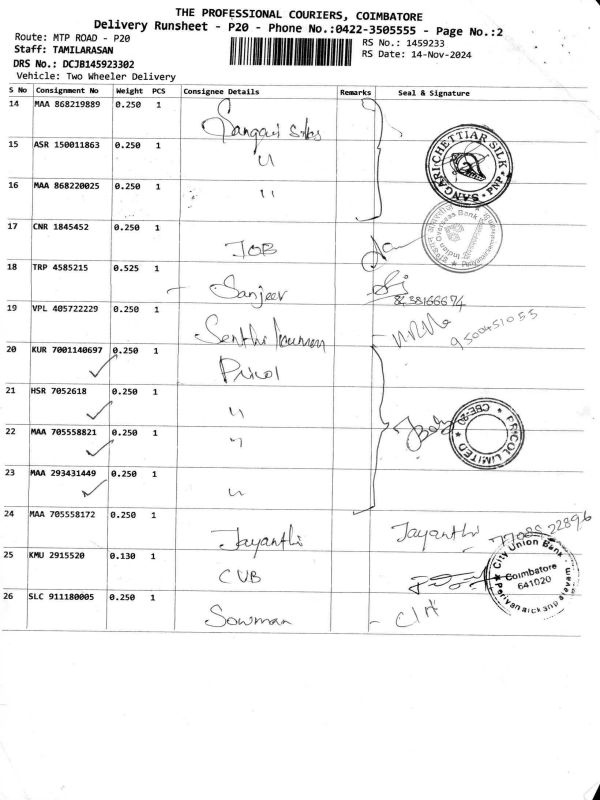 THE PROFESSIONAL COURIERS, COIMBATORE
Delivery Runsheet - P20 - Phone No.:0422-3505555 - Page No.:2
Route: MTP ROAD - P20
RS No.: 1459233
Staff: TAMILARASAN
RS Date: 14-Nov-2024
DRS No.: DCJB145923302
Vehicle: Two Wheeler Delivery
S No Consignment No Weight PCS Consignee Details Remarks Seal & Signature
14 MAA 868219889 0.250 1
15 ASR 150011863 0.250 1 "
16 MAA 868220025 0.250 1 "
SANGARI-CHETTIAR SILK PNP
17 CNR 1845452 0.250 1 IOB
Indian Overseas Bank
18 TRP 4585215 0.525 1 - Sanjeev
8438166674
19 VPL 405722229 0.250 1
9500451055
20 KUR 7001140697 0.250 1 Pricol
21 HSR 7052618 0.250 1 "
22 MAA 705558821 0.250 1 "
PRICOL LIMITED CBE-20
23 MAA 293431449 0.250 1 "
24 MAA 705558172 0.250 1 Jayanthi Jayanthi
25 KMU 2915520 0.130 1 CUB
City Union Bank
Coimbatore
641020
Periyanaickanpalayam
26 SLC 911180005 0.250 1 Sowman